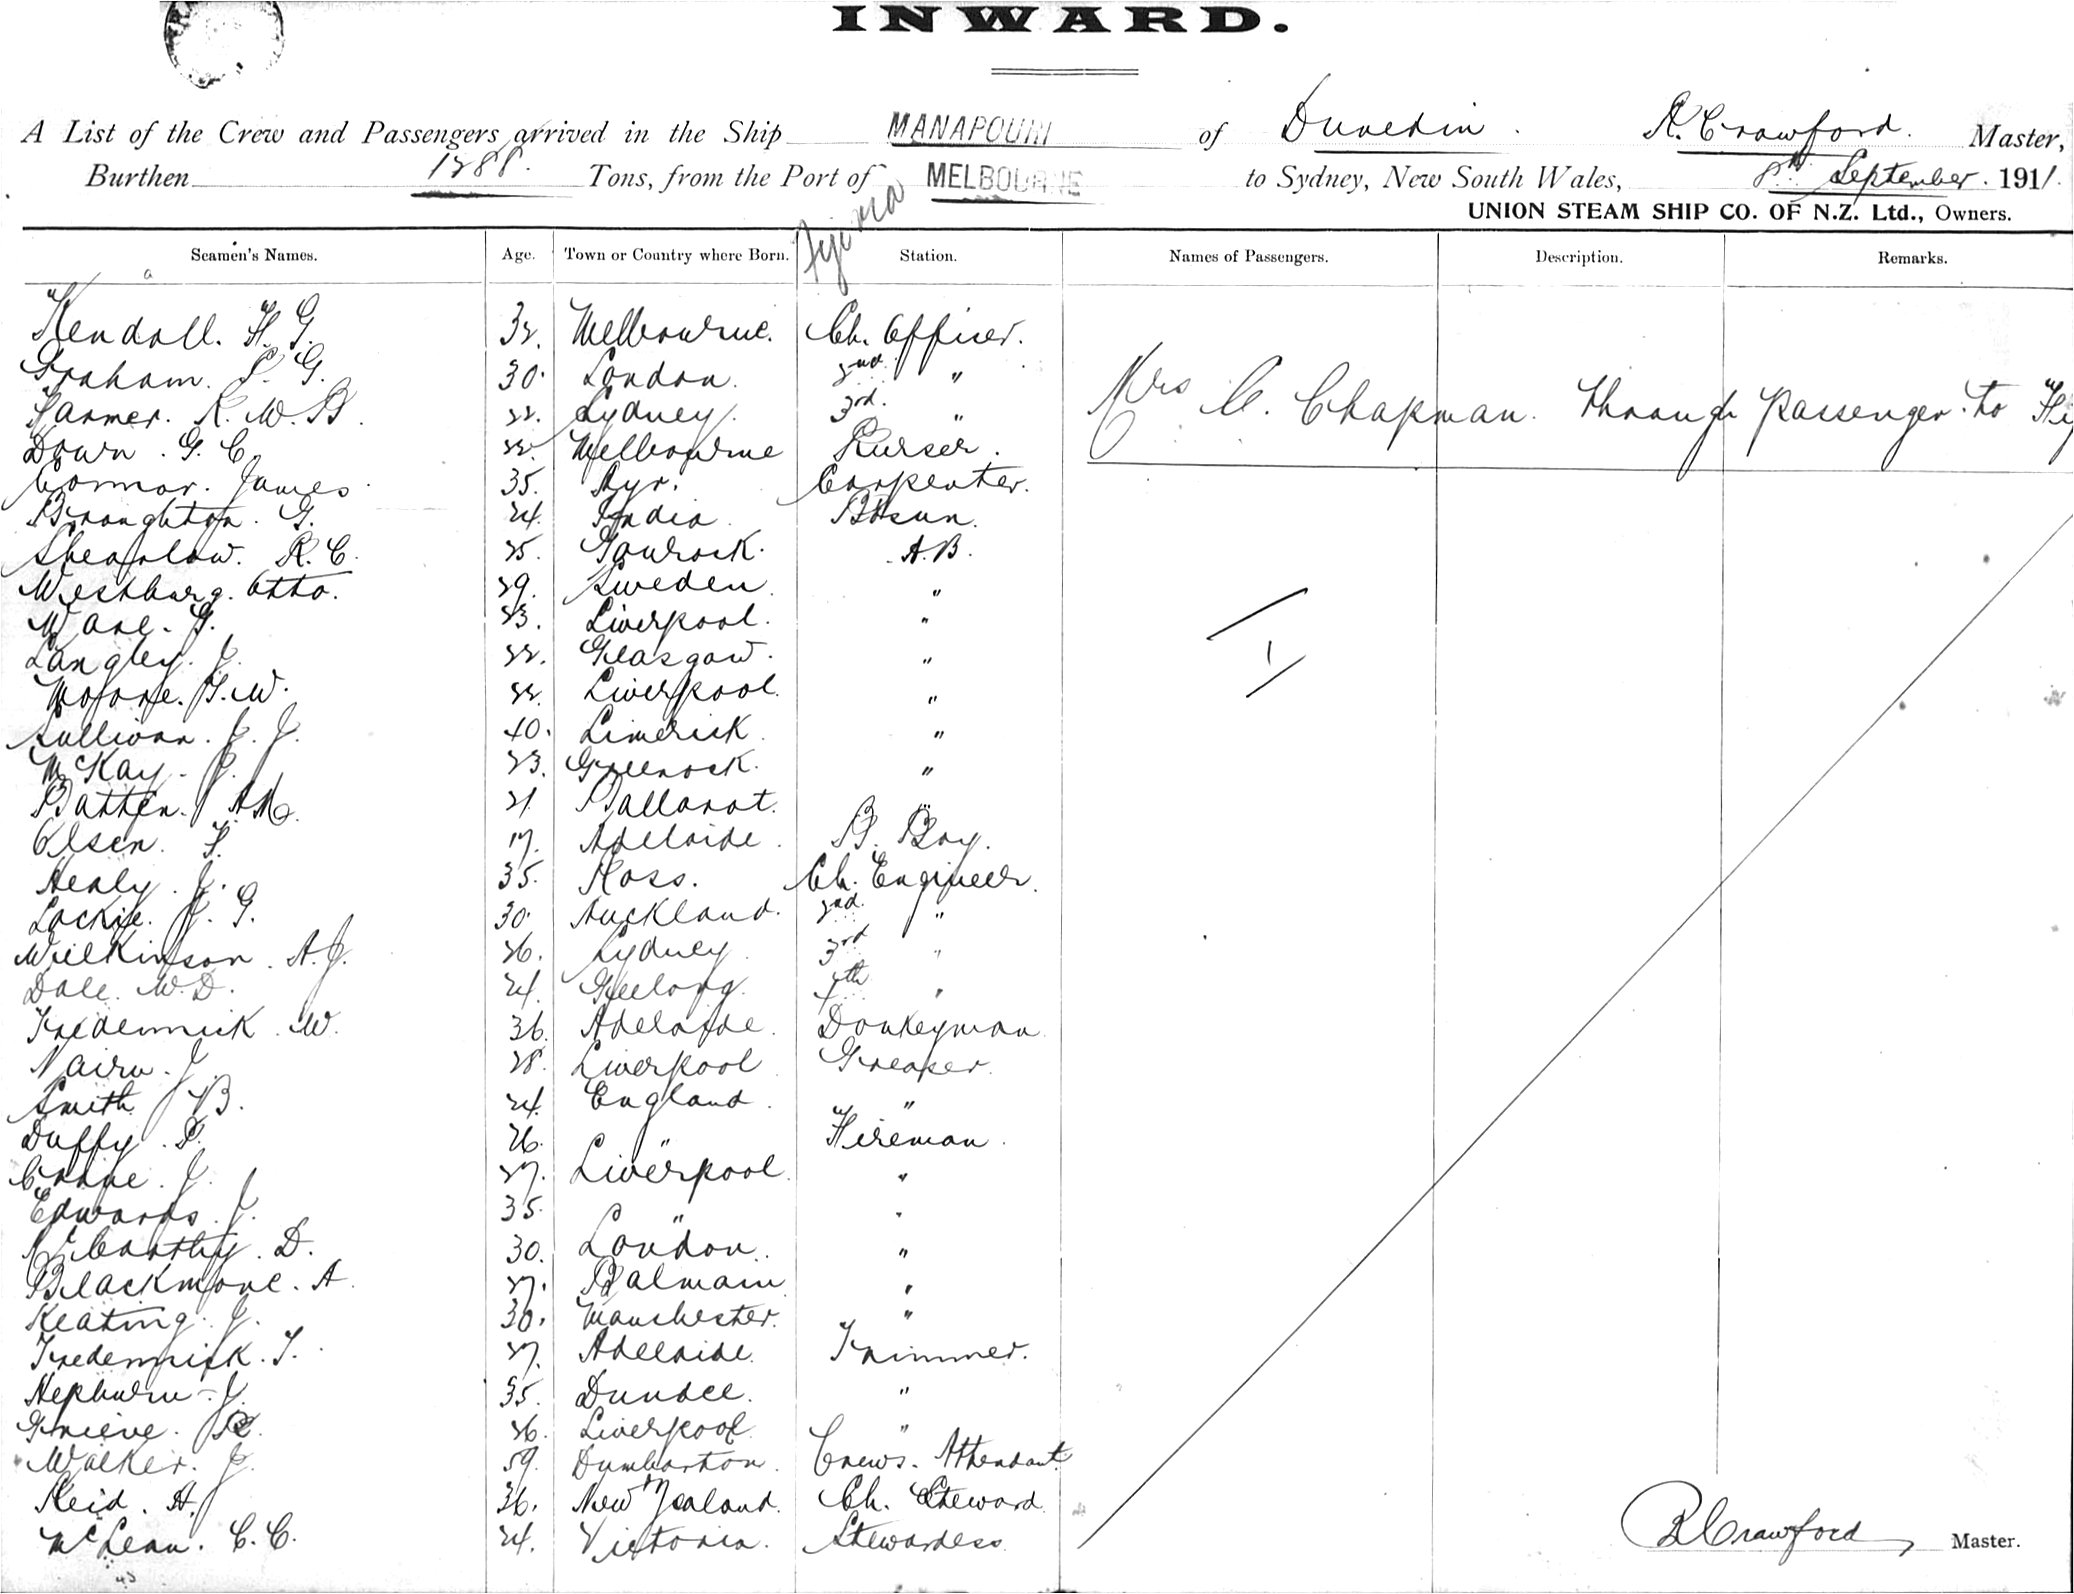 INWARD.
A List of the Crew and Passengers arrived in the Ship MANAPOURI of Dunedin. R. Crawford. Master,
Burthen 1288. Tons, from the Port of MELBOURNE to Sydney, New South Wales, 8th September. 1911.
UNION STEAM SHIP CO. OF N.Z. Ltd., Owners.
Seamen's Names. Age. Town or Country where Born. Station. Names of Passengers. Description. Remarks.
Kendall. H. G. 32. Melbourne. Ch. Officer.
Graham. S. G. 30. London. 2nd. "
Mrs C. Chapman. Through passenger to
Farmer. R. W. B. 22. Sydney. 3rd. "
Down. G. C. 22. Melbourne Purser.
Connor. James 35. Ayr. Carpenter.
Broughton. G. 24. India. Bosun.
Shearlaw. R. C. 25. Gourock. A.B.
Westburg. Otto. 29. Sweden "
Ware. G. 23. Liverpool. "
Langley. J. 22. Glasgow. "
Moore. G. W. 22. Liverpool. "
1
Sullivan. J. J. 40. Limerick "
McKay. P. 23. Greenock. "
Batten. 21 Ballarat. "
Olsen. F. 17. Adelaide. B. Boy.
Healy. J. 35. Ross. Ch. Engineer.
Lockie. J. G. 30. Auckland. 2nd. "
Wilkinson. A. J. 26. Sydney 3rd "
Dale. W. D. 24. Geelong. 4th "
Fredennick. W. 36. Adelaide. Donkeyman
Nairn. J. 28. Liverpool Greaser.
Smith B. 24. England. "
Duffy. P. 26. " Fireman.
Crane. J. 27. Liverpool "
Edwards. J. 35. " "
McCarthy. D. 30. London. "
Blackmore. A. 27. Balmain "
Keating. J. 30. Manchester. "
Fredennick. T. 27. Adelaide. Trimmer.
Hepburn. J. 35. Dundee. "
Grieve. 26. Liverpool "
Walker. J. 59. Dumbarton. Crews. Attendant
Reid. A. 36. New Zealand. Ch. Steward
McLean. C. C. 24. Victoria. Stewardess
R Crawford Master.